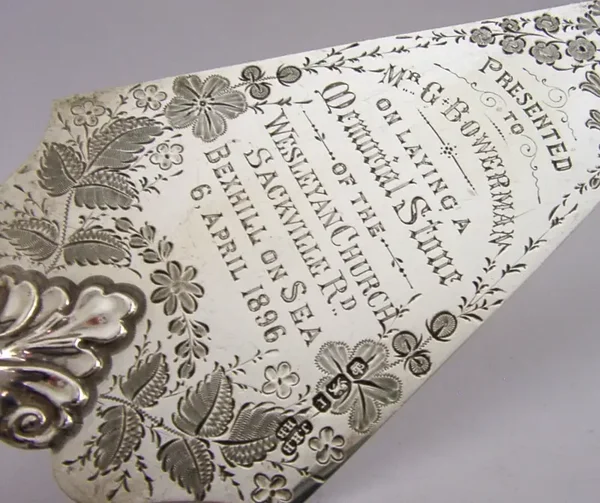 PRESENTED
TO
MR. G. BOWERMAN
ON LAYING A
Memorial Stone
OF THE
WESLEYAN CHURCH
SACKVILLE RD.
BEXHILL ON SEA
6 APRIL 1896